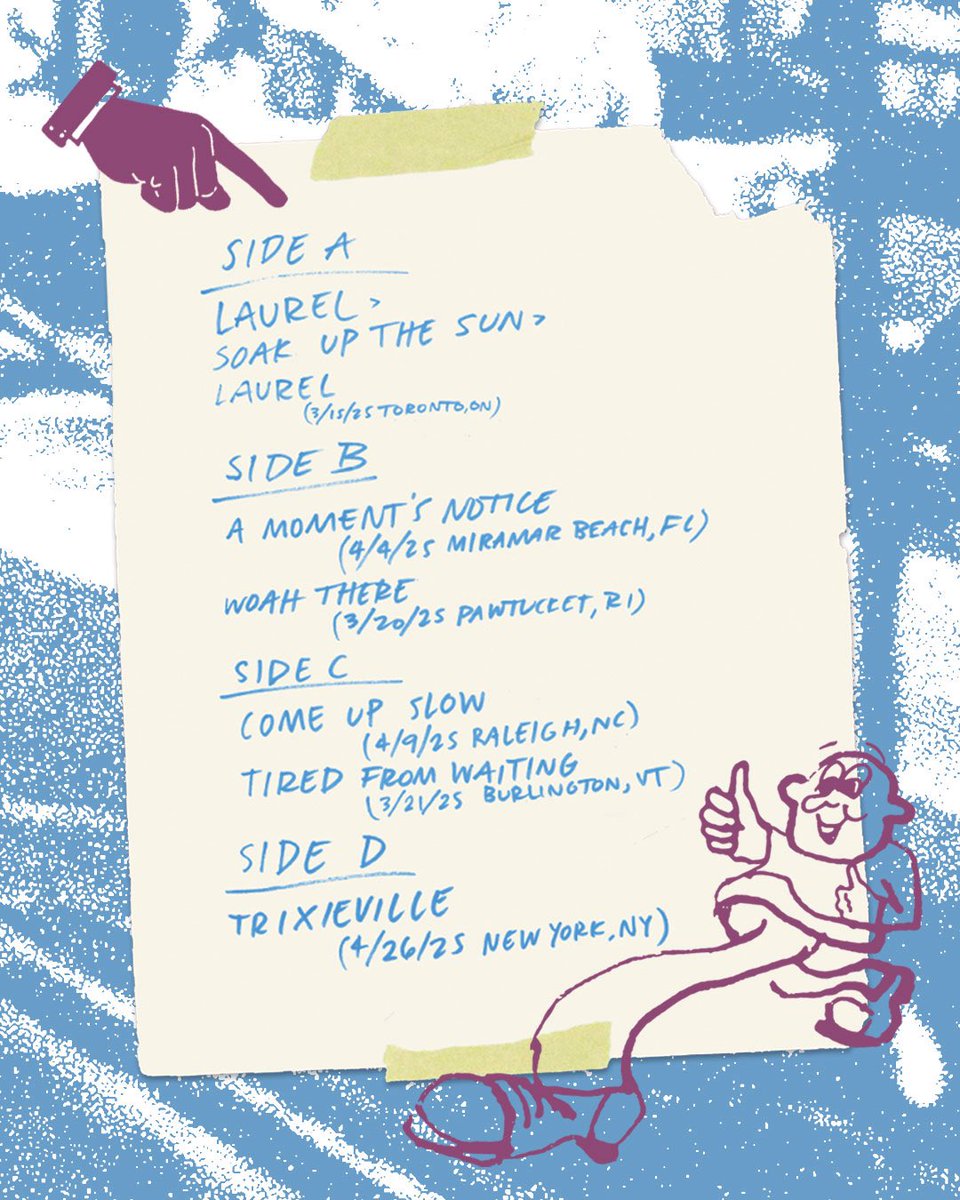 SIDE A
LAUREL >
SOAK UP THE SUN >
LAUREL
(3/15/25 TORONTO, ON)
SIDE B
A MOMENT'S NOTICE
(4/4/25 MIRAMAR BEACH, FL)
WOAH THERE
(3/20/25 PAWTUCKET, RI)
SIDE C
COME UP SLOW
(4/9/25 RALEIGH, NC)
TIRED FROM WAITING
(3/21/25 BURLINGTON, VT)
SIDE D
TRIXIEVILLE
(4/26/25 NEW YORK, NY)